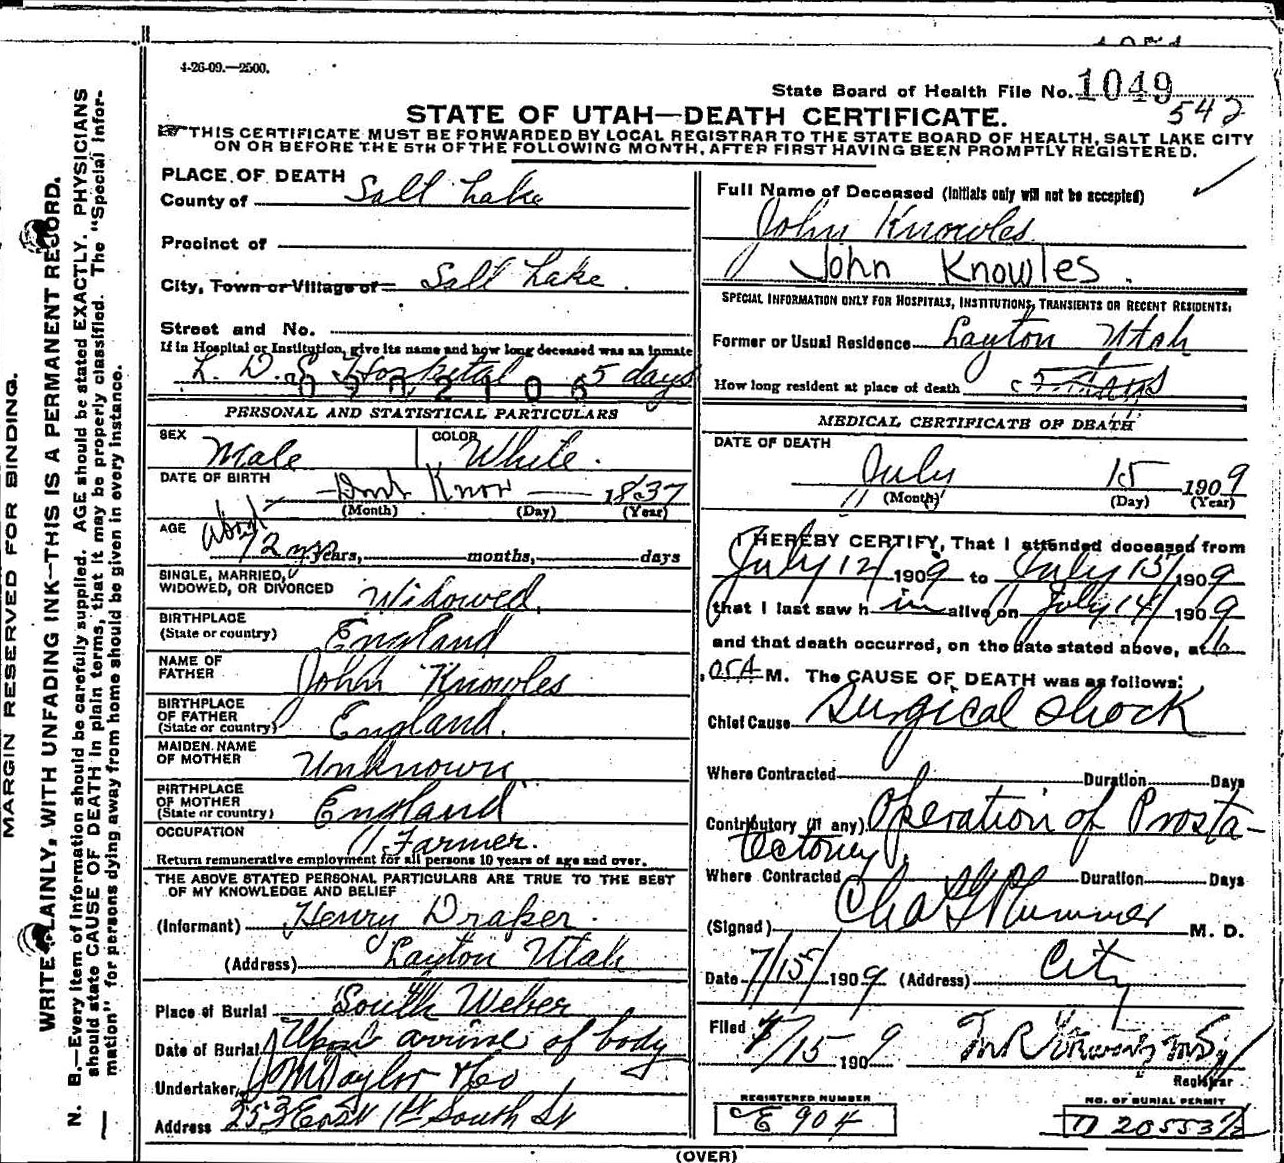 4-26-09.—2500.
State Board of Health File No. 1049
542
STATE OF UTAH—DEATH CERTIFICATE.
THIS CERTIFICATE MUST BE FORWARDED BY LOCAL REGISTRAR TO THE STATE BOARD OF HEALTH, SALT LAKE CITY
ON OR BEFORE THE 5TH OF THE FOLLOWING MONTH, AFTER FIRST HAVING BEEN PROMPTLY REGISTERED.
MARGIN RESERVED FOR BINDING.
WRITE PLAINLY, WITH UNFADING INK—THIS IS A PERMANENT RECORD.
N. B.—Every item of information should be carefully supplied. AGE should be stated EXACTLY. PHYSICIANS
should state CAUSE OF DEATH in plain terms, that it may be properly classified. The "Special Infor-
mation" for persons dying away from home should be given in every instance.
PLACE OF DEATH
County of Salt Lake
Precinct of
City, Town or Village of Salt Lake.
Street and No.
If in Hospital or Institution, give its name and how long deceased was an inmate
L. D. S. Hospital 5 days
PERSONAL AND STATISTICAL PARTICULARS
SEX Male COLOR White.
DATE OF BIRTH Dont Know 1837
(Month) (Day) (Year)
AGE about 72 years, months, days
SINGLE, MARRIED,
WIDOWED, OR DIVORCED Widowed.
BIRTHPLACE
(State or country) England
NAME OF
FATHER John Knowles
BIRTHPLACE
OF FATHER
(State or country) England.
MAIDEN NAME
OF MOTHER Unknown
BIRTHPLACE
OF MOTHER
(State or country) England
OCCUPATION Farmer.
Return remunerative employment for all persons 10 years of age and over.
THE ABOVE STATED PERSONAL PARTICULARS ARE TRUE TO THE BEST
OF MY KNOWLEDGE AND BELIEF
(Informant) Henry Draper.
(Address) Layton Utah
Place of Burial South Weber
Date of Burial Upon arrive of body
Undertaker, Taylor & Co
Address 253 East 1st South St
Full Name of Deceased (Initials only will not be accepted)
John Knowles
John Knowles.
SPECIAL INFORMATION ONLY FOR HOSPITALS, INSTITUTIONS, TRANSIENTS OR RECENT RESIDENTS.
Former or Usual Residence Layton Utah
How long resident at place of death 5 days
MEDICAL CERTIFICATE OF DEATH
DATE OF DEATH
July 15 1909
(Month) (Day) (Year)
I HEREBY CERTIFY, That I attended deceased from
July 12 1909 to July 15 1909
that I last saw h im alive on July 14 1909
and that death occurred, on the date stated above, at 6
.05A M. The CAUSE OF DEATH was as follows:
Chief Cause Surgical shock
Where Contracted Duration Days
Contributory (if any) Operation of Prosta-
tectomy.
Where Contracted Duration Days
(Signed) Chas G Plummer M. D.
Date 7/15/ 1909 (Address) City
Filed 7/15 1909
Registrar
REGISTERED NUMBER
E 904
NO. OF BURIAL PERMIT
(OVER)